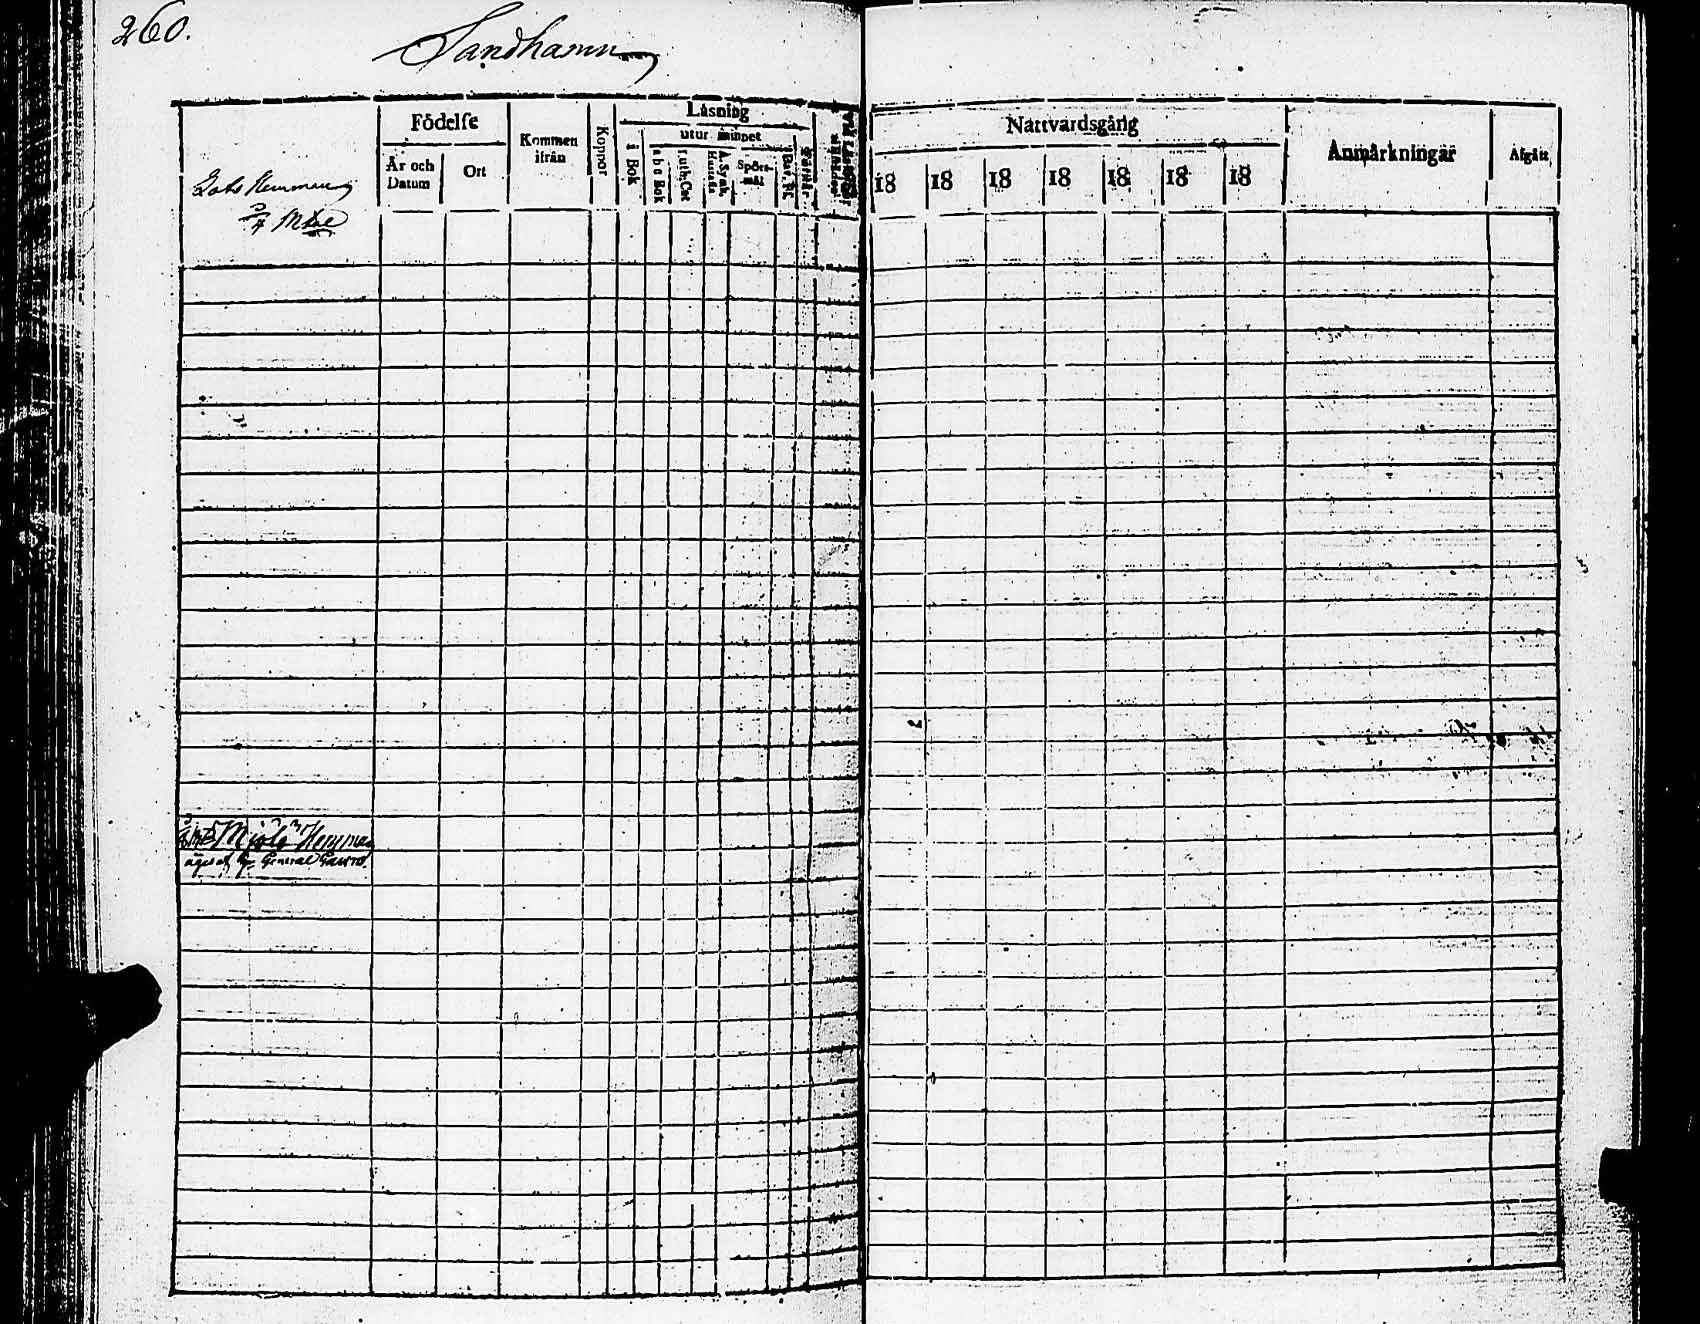 260.
Sandhamn
Lots Hemman
3/4 Mtal
Födelse
År och Datum
Ort
Kommen ifrån
Kopnor
Läsning
utur minnet
i Bok
a b c Bok
Luth. Cat
A. Symb.
Spörs-mål
Nattvardsgång
18 18 18 18 18 18 18
Anmärkningar
Afgått
Hemman
General